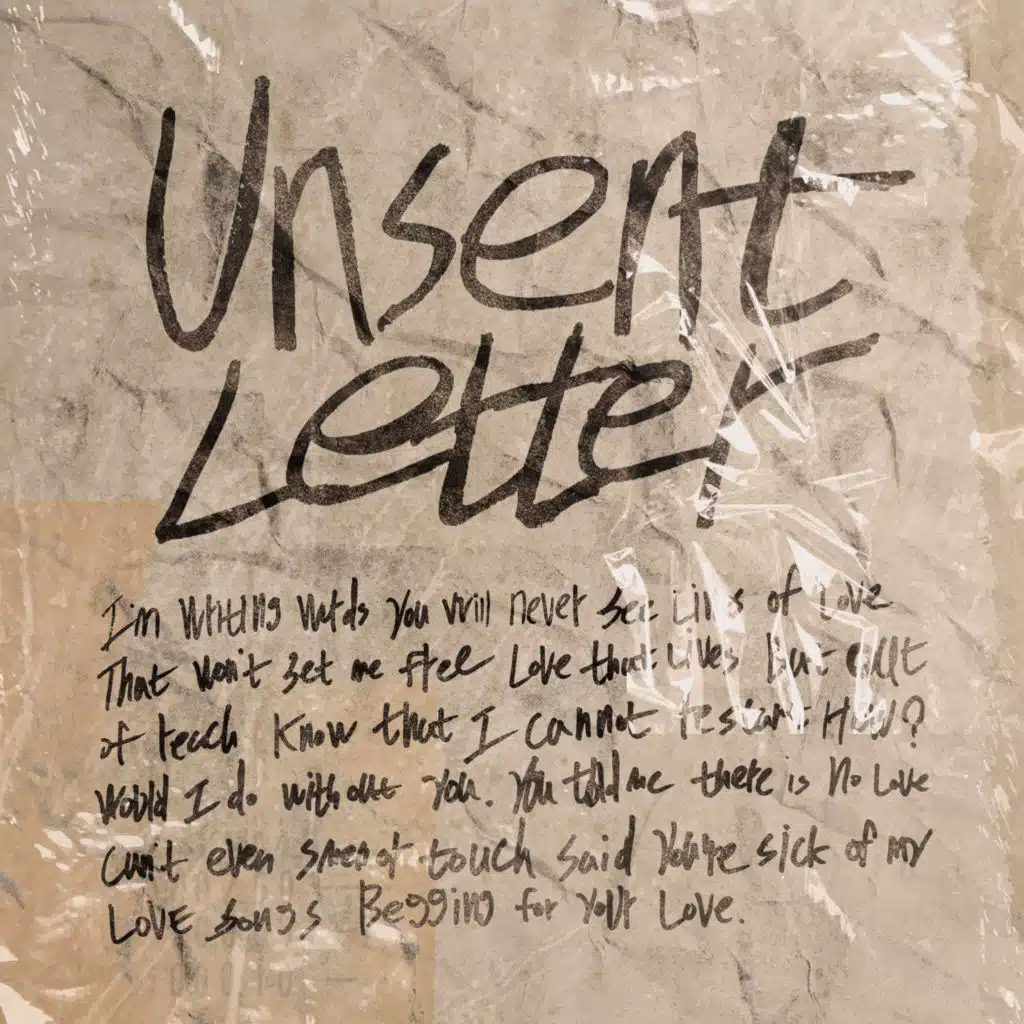 Unsent
Letter
I'm writing words you will never see Lines of Love
That won't set me free Love that Lives But out
of reach Know that I cannot restart How?
Would I do without You. You told me there is No Love
can't even speak or touch said You're sick of my
LOVE songs Begging for your Love.